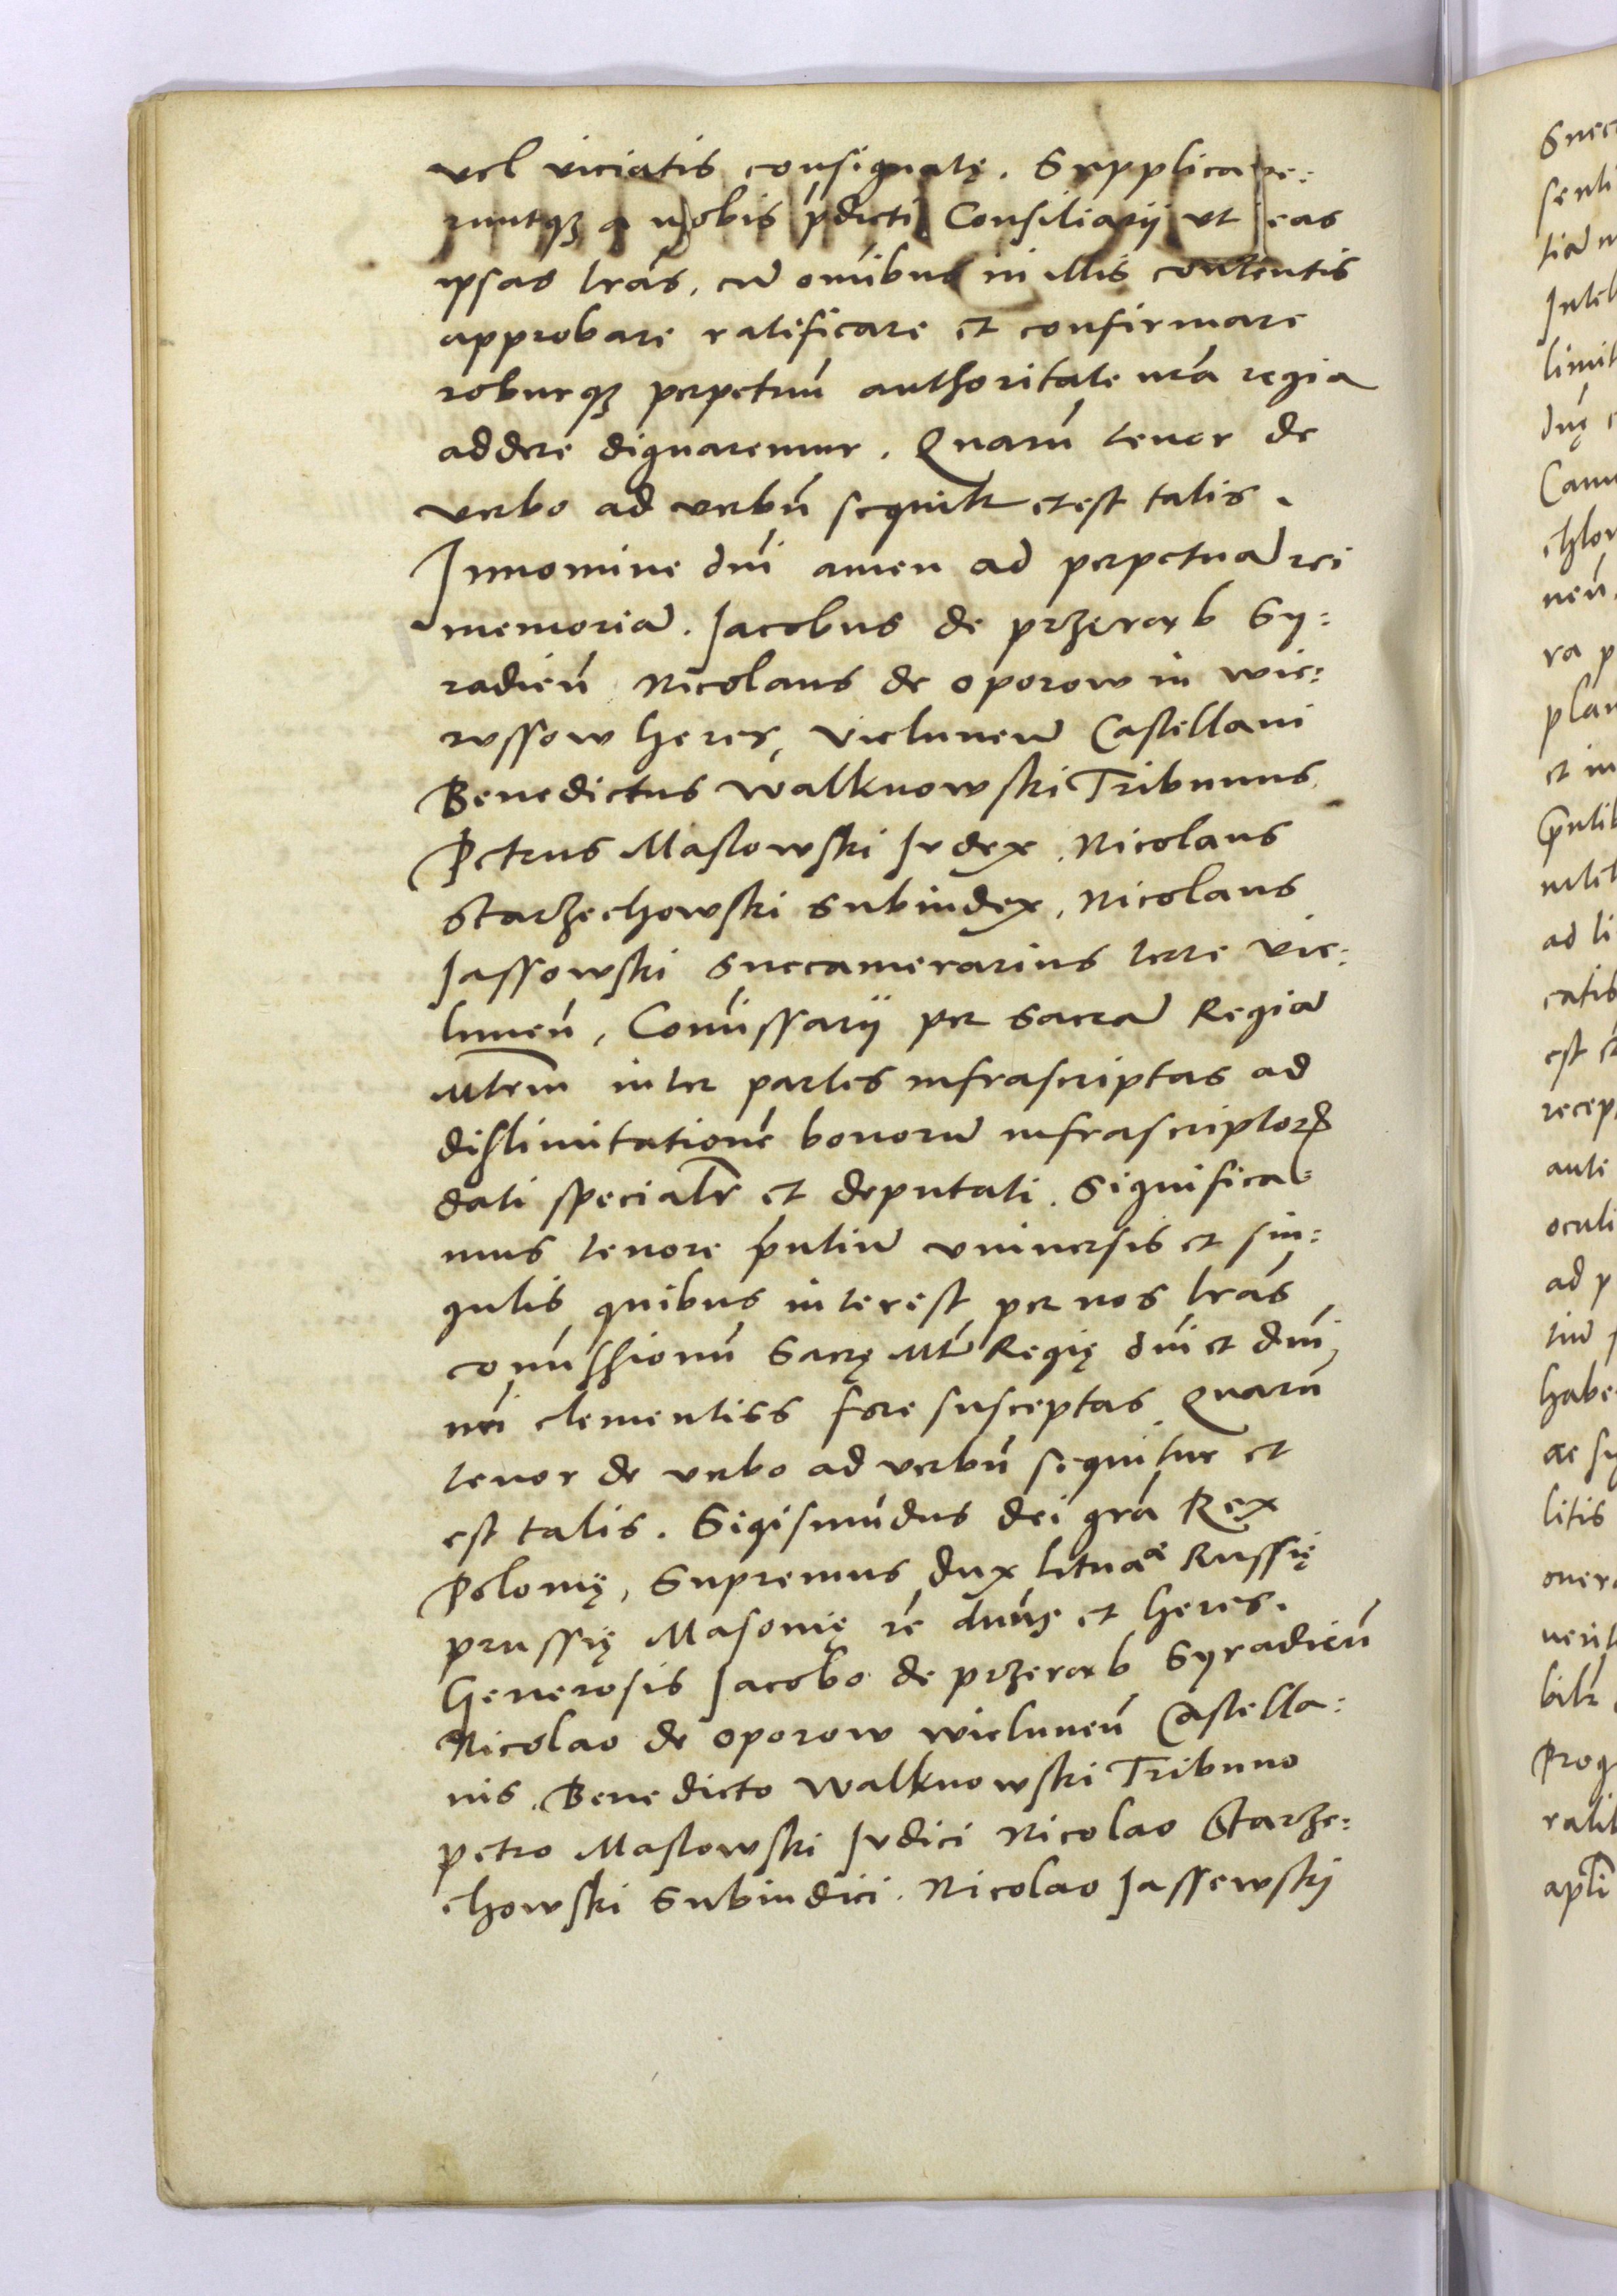 vel viciatis consignatę. Supplicave:
runtqȝ a nobis p̃dicti Consiliarij ut eas
ipsas l̃ras, cũ om̃ibus in illis contentis
approbare ratificare et confirmare
roburqȝ perpetuũ authoritate nr̃a regia
addere dignaremur. Quarũ tenor de
verbo ad verbũ sequitr et est talis.
In nomine dñi amen ad perpetuã rei
memoriã. Jacobus de przerarb Sy:
radieñ Nicolaus de oporow in wie:
russow heres, vieluneñ Castellani
Benedictus walknowski Tribunus
Petrus Maslowski Iudex, Nicolaus
Starzechowski subiudex, Nicolaus
Jassowski succamerarius terre vie:
luneñ, Com̃issarij per sacrã Regiã
Mtem inter partes infrascriptas ad
dislimitationẽ bonorũ infrascriptorꝝ
dati specialr̃ et deputati. Significa:
mus tenore p̃ntiũ universis et sin:
gulis quibus interest per nos l̃ras
com̃issionũ Sacrę Mt̃ Regię dñi et dñi
nr̃i clementiss fore susceptas Quarũ
tenor de verbo ad verbũ sequitur et
est talis. Sigismũdus dei gr̃a Rex
Polonię, Supremus dux lituaæ Russię
prussię Masouię et̃ dñus et heres.
Generosis Jacobo de przerarb Syradieñ
Nicolao de oporow wieluneñ Castella:
nis. Benedicto walknowski Tribuno
petro Maslowski Iudici Nicolao Starze:
chowski Subiudici. Nicolao Jassewskij